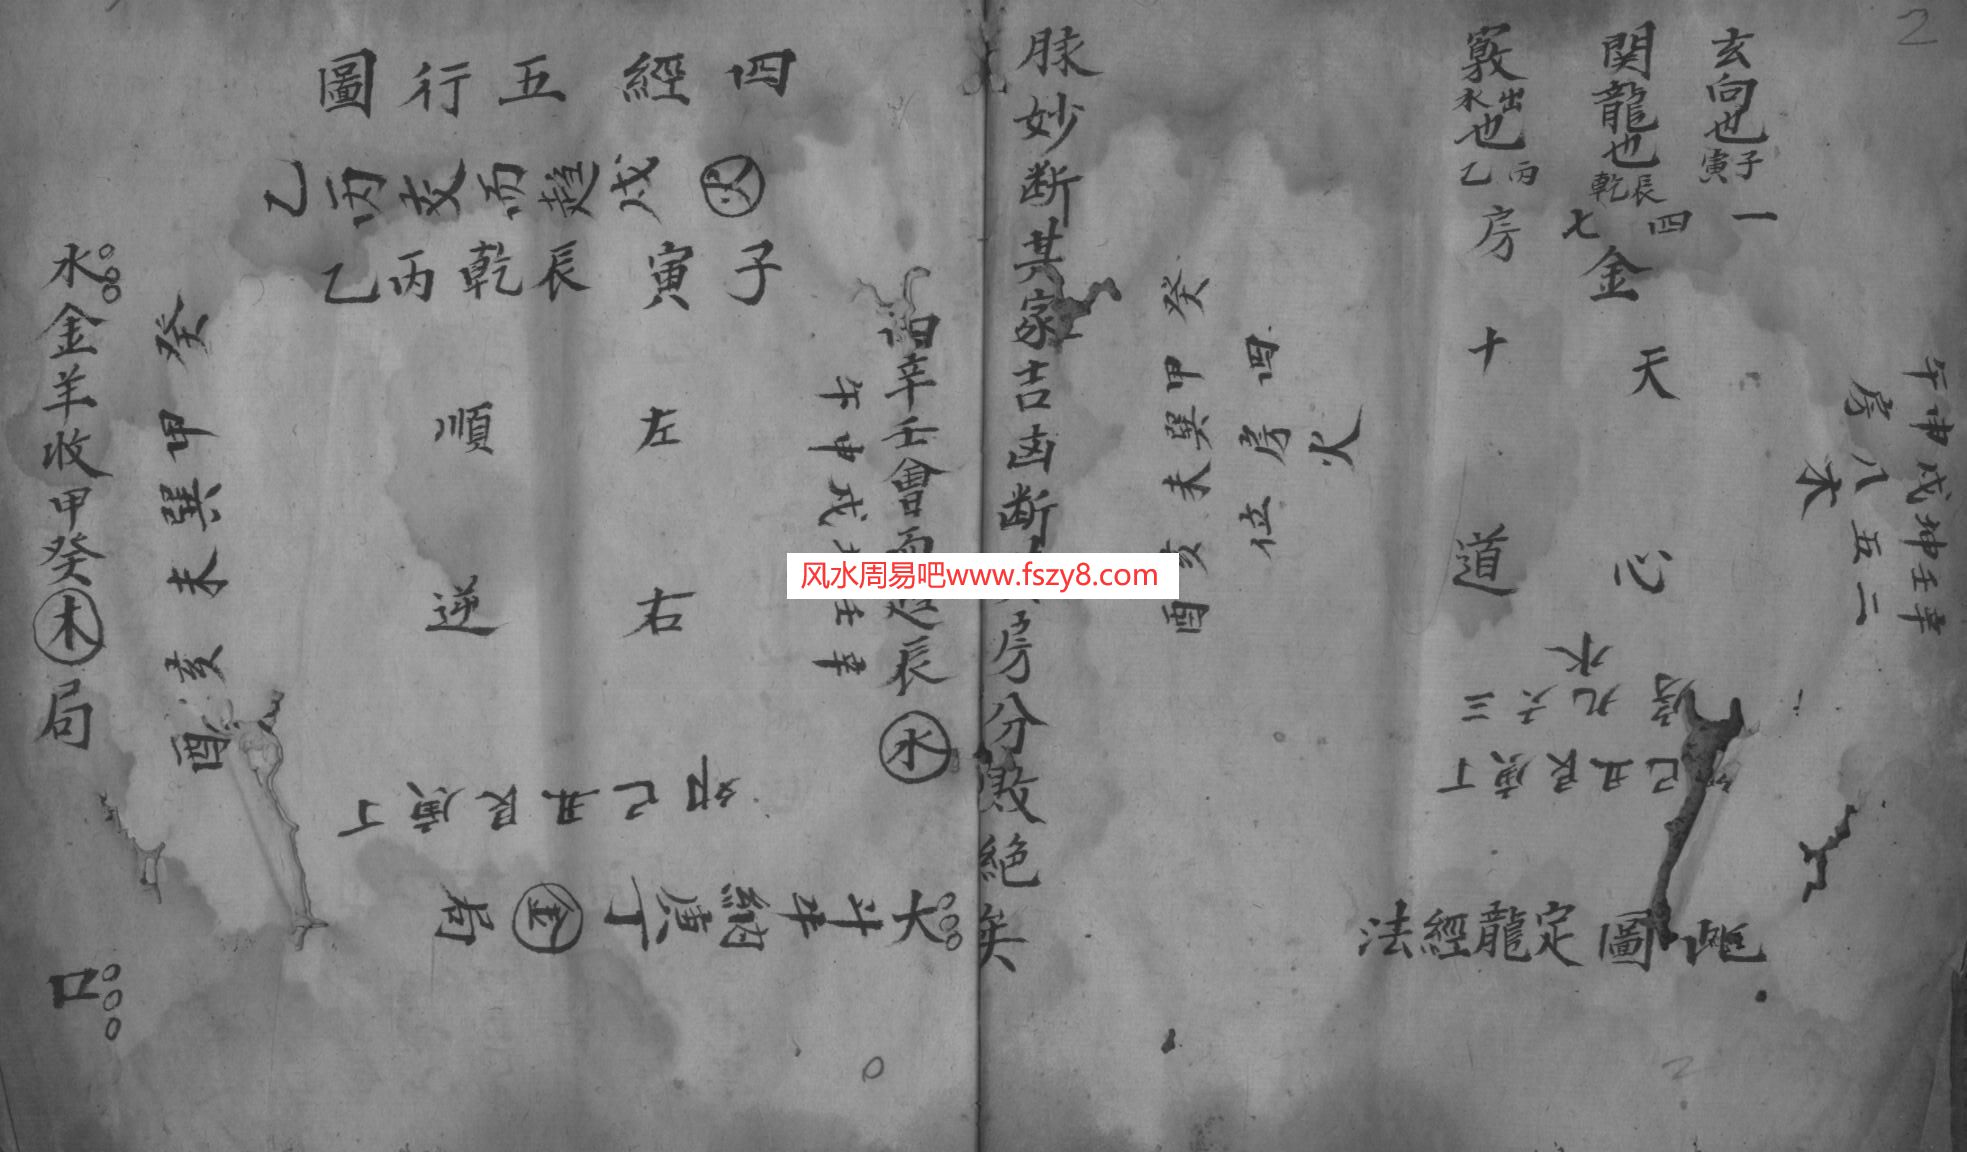 2
玄向也 子寅
関龍也 辰乾
竅 出水 也 丙乙
一四七房
金
天心
十道
午申戌坤壬辛
房八五二
木
火
四房位
癸甲巽未亥酉
水
三六九房
丁庚艮丑巳卯
法經龍定圖
脉妙断其家吉凶断
房分敗絶矣
四經五行圖
火
乙丙交而趋戌
子寅辰乾丙乙
辛壬會而
辰水
午申戌
壬辛
左右
順逆
癸甲巽未亥酉
卯巳丑艮庚丁
斗牛納庚丁金局
水金羊收甲癸木局
口
风水周易吧www.fszy8.com